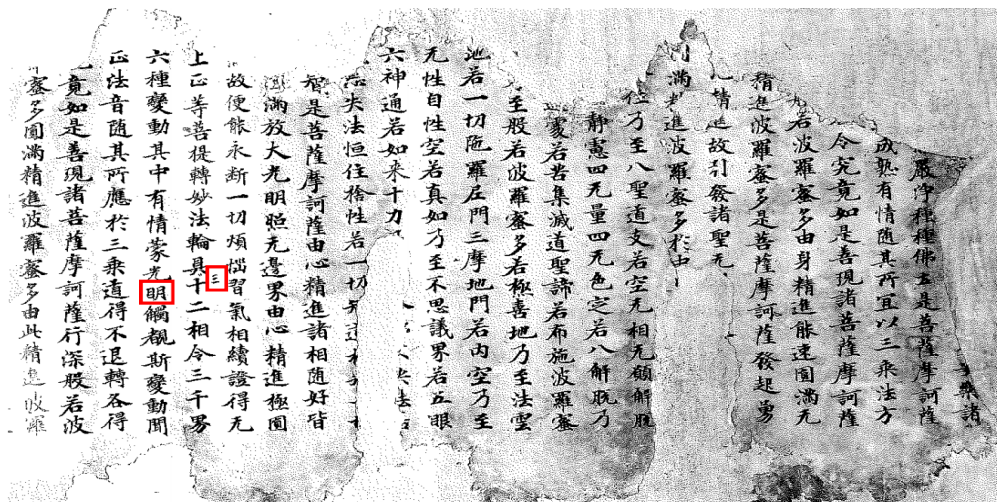 樂諸
嚴淨種種佛土是菩薩摩訶薩
成熟有情随其所宜以三乘法方
令究竟如是善現諸菩薩摩訶薩
若波羅蜜多由身精進能速圓滿无
精進波羅蜜多是菩薩摩訶薩發起勇
精進故引發諸聖无
滿精進波羅蜜多於由
位乃至八聖道支若空无相无願解脫
靜慮四无量四无色定若八解脫乃
蜜若苦集滅道聖諦若布施波羅蜜
至般若波羅蜜多若極喜地乃至法雲
地若一切陁羅尼門三摩地門若內空乃至
无性自性空若真如乃至不思議界若五眼
六神通若如來十力 法
忘失法恒住捨性若一切智道相
智是菩薩摩訶薩由心精進諸相随好皆
圓滿放大光明照无邊界由心精進極圓
故便能永断一切煩惱習氣相續證得无
上正等菩提轉妙法輪具三十二相令三千界
六種變動其中有情蒙光明觸覩斯變動聞
正法音随其所應於三乘道得不退轉各得
竟如是善現諸菩薩摩訶薩行深般若波
蜜多圓滿精進波羅蜜多由此精進波羅